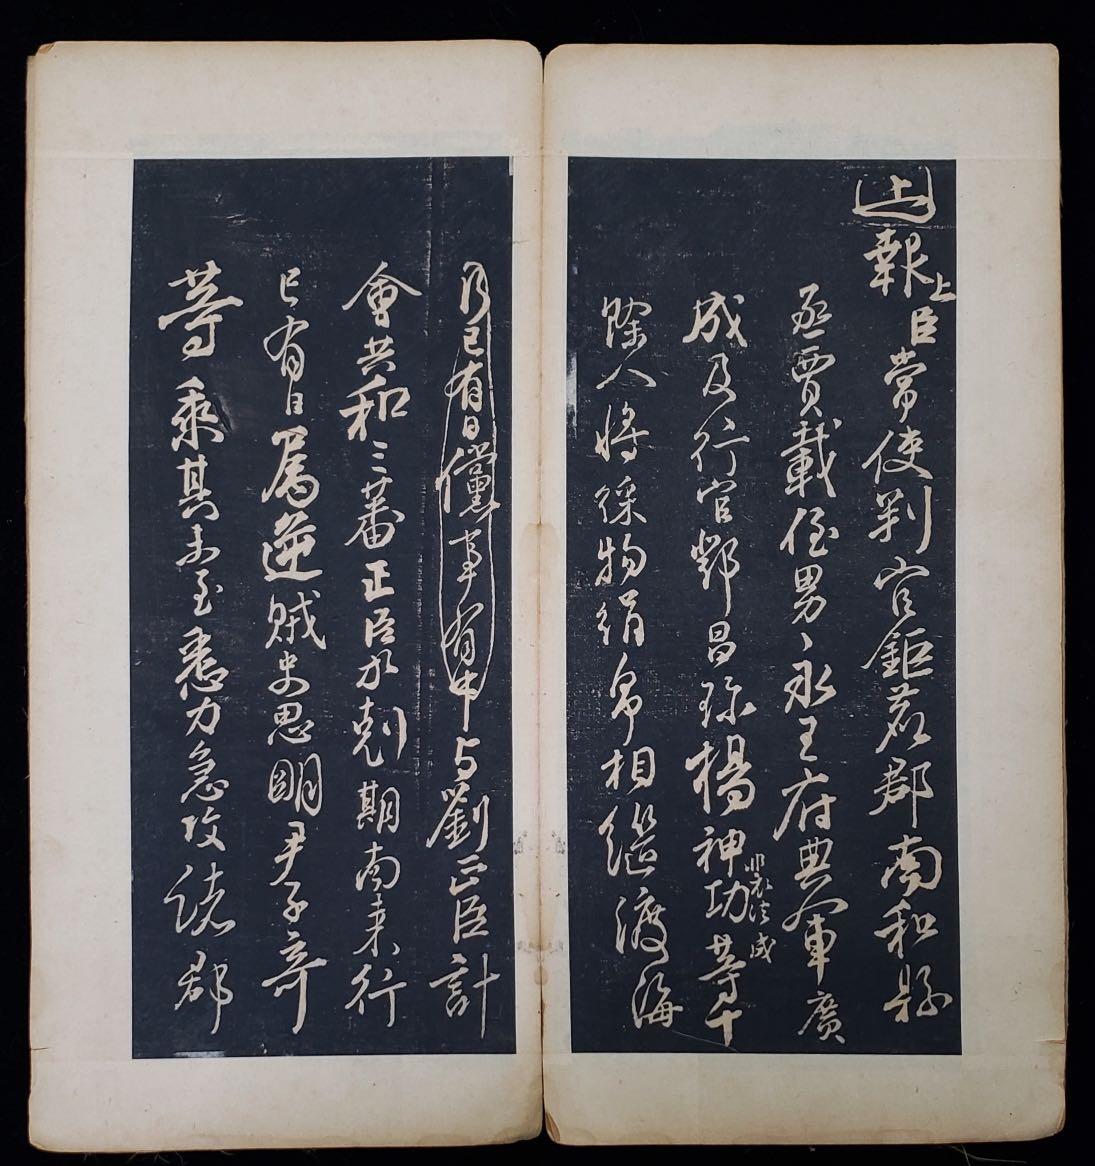 報上臣常使判官鉅鹿郡南和縣
丞賈載侄男永王府典軍廣
成及行官鄧昌珍楊神功等十
裴法成
餘人將綵物絹帛相繼渡海
已有日儻事有中与劉正臣計
會共和三蕃正臣亦剋期南来行
已有日属逆賊史思明尹子奇
等乘其未至悉力急攻諸郡